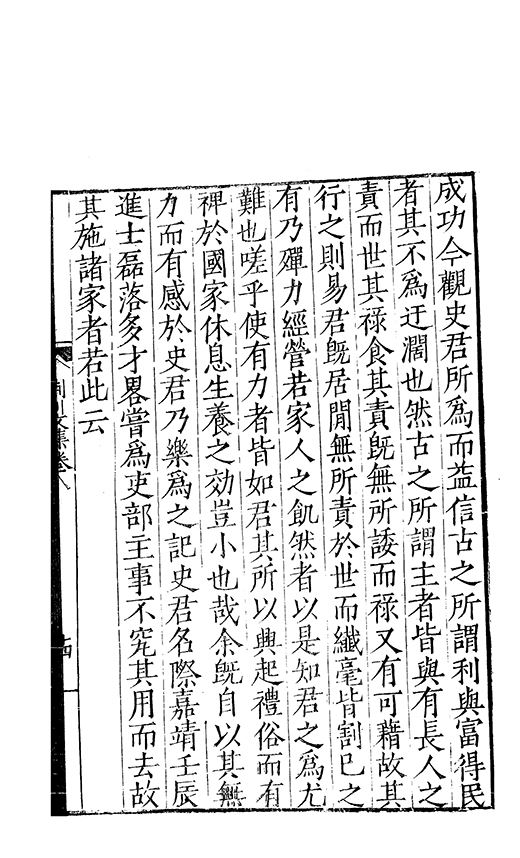 成功今觀史君所為而益信古之所謂利與富得民
者其不為迂濶也然古之所謂主者皆與有長人之
責而世其祿食其責既無所諉而祿又有可藉故其
行之則易君既居閒無所責於世而纖毫皆割已之
有乃殫力經營若家人之飢然者以是知君之為尤
難也嗟乎使有力者皆如君其所以興起禮俗而有
裨於國家休息生養之効豈小也哉余既自以其無
力而有感於史君乃樂為之記史君名際嘉靖壬辰
進士磊落多才畧嘗為吏部主事不究其用而去故
其施諸家者若此云
川文集卷八